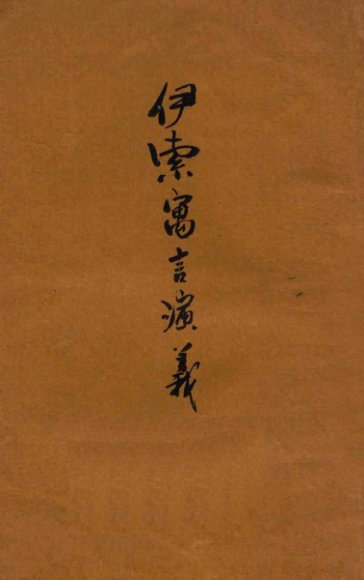 伊索寓言演義